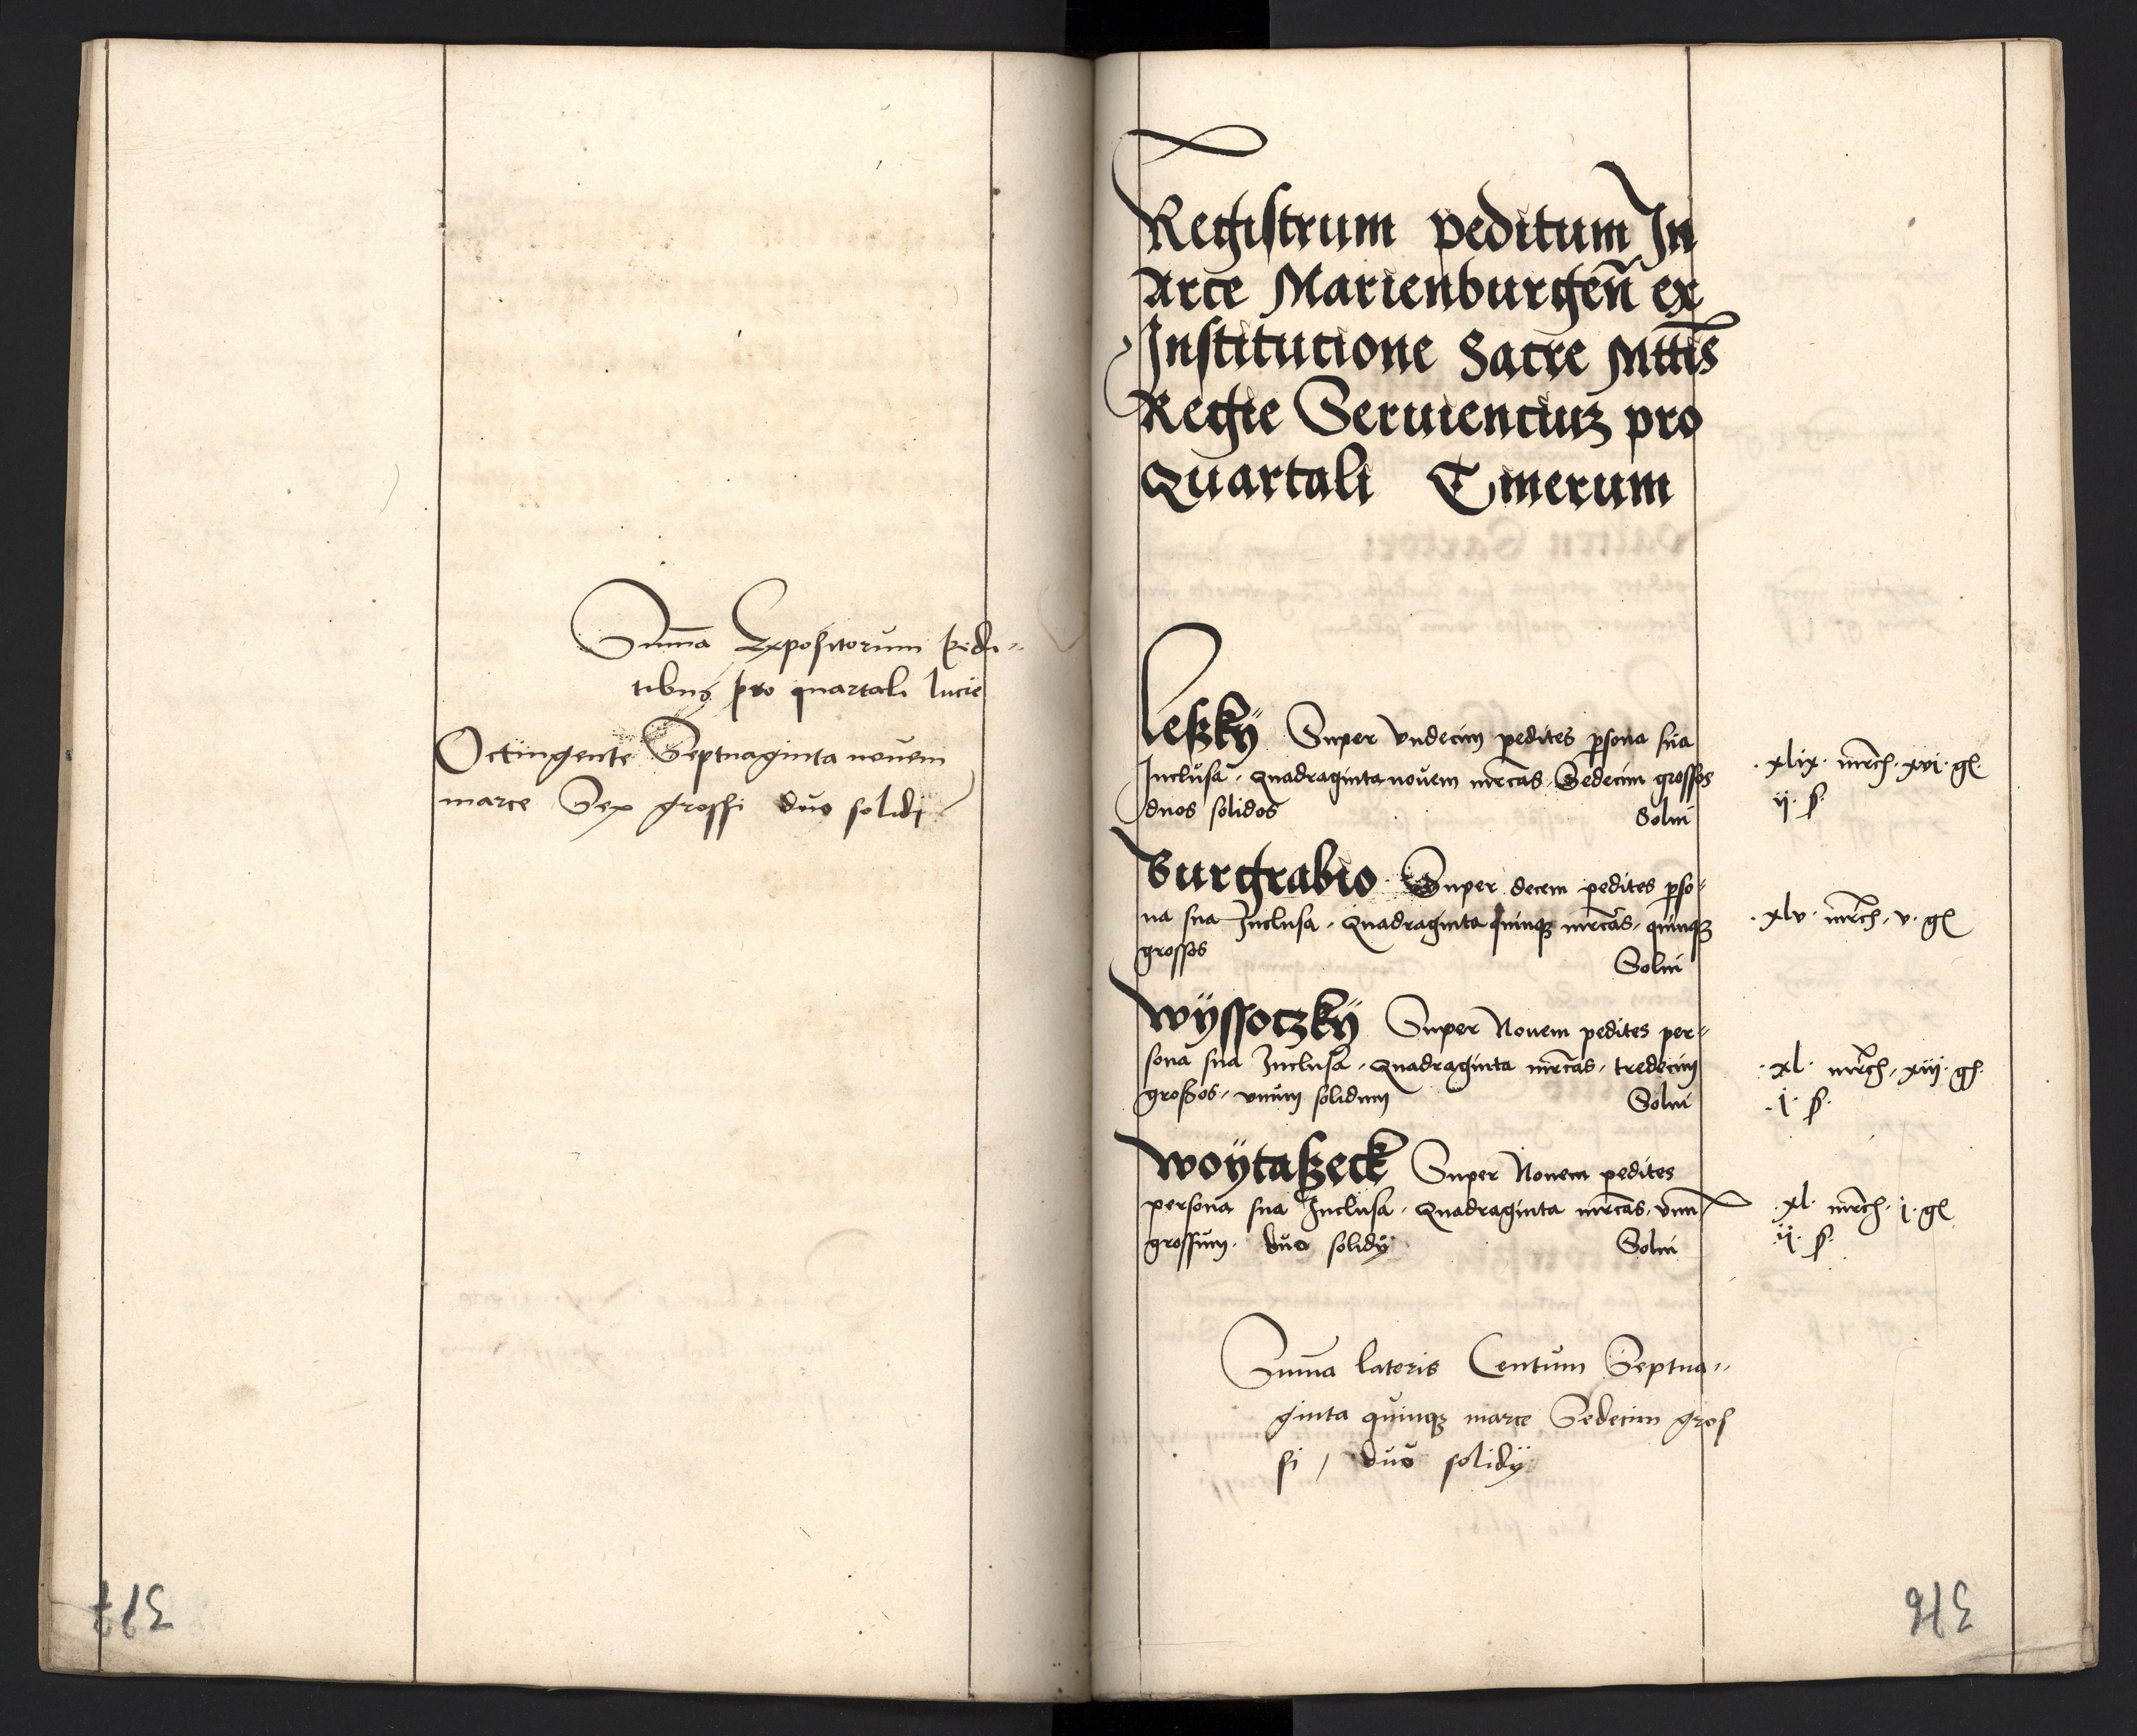 Suma Expositorum pedi-
tibus pro quartali lucie
Octingente Septuaginta nouem
marce Sex grossi duo solidi
Registrum peditum In
Arce Marienburgeñ ex
Institucione Sacre Mttis
Regie Seruienciuʒ pro
Quartali Cinerum
Leßkÿ Super Vndecim pedites psona sua
Inclusa, Quadraginta nouem mrcas Sedecim grossos
duos solidos Solui
.xlix. mrch. xvi. gl.
ij. s.
Burgrabio Super decem pedites pso-
na sua Inclusa, Quadraginta quinqʒ mrcas, quinqʒ
grossos Solui
.xlv. mrch, v. gl
Wÿssoczkÿ Super Nouem pedites per-
sona sua Inclusa, Quadraginta mrcas, tredecim
großos, vnum solidum Solui
.xl. mrch, xiij. gl.
.j. s.
Woÿtaßeck Super Nouem pedites
persona sua Inclusa, Quadraginta mrcas, vnum
grossum. duo solidÿ Solui
.xl. mrch. j. gl
.ij. s.
Suma lateris Centum Septua-
ginta quinqʒ marce Sedecim gros
si, duo solidÿ
377
376